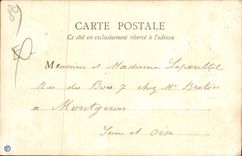 89
CARTE POSTALE
Ce côté est exclusivement réservé à l'adresse
Monsieur et Madame
Rue des Bois 7 chez Mr Breton
à Montgeron
Seine et Oise